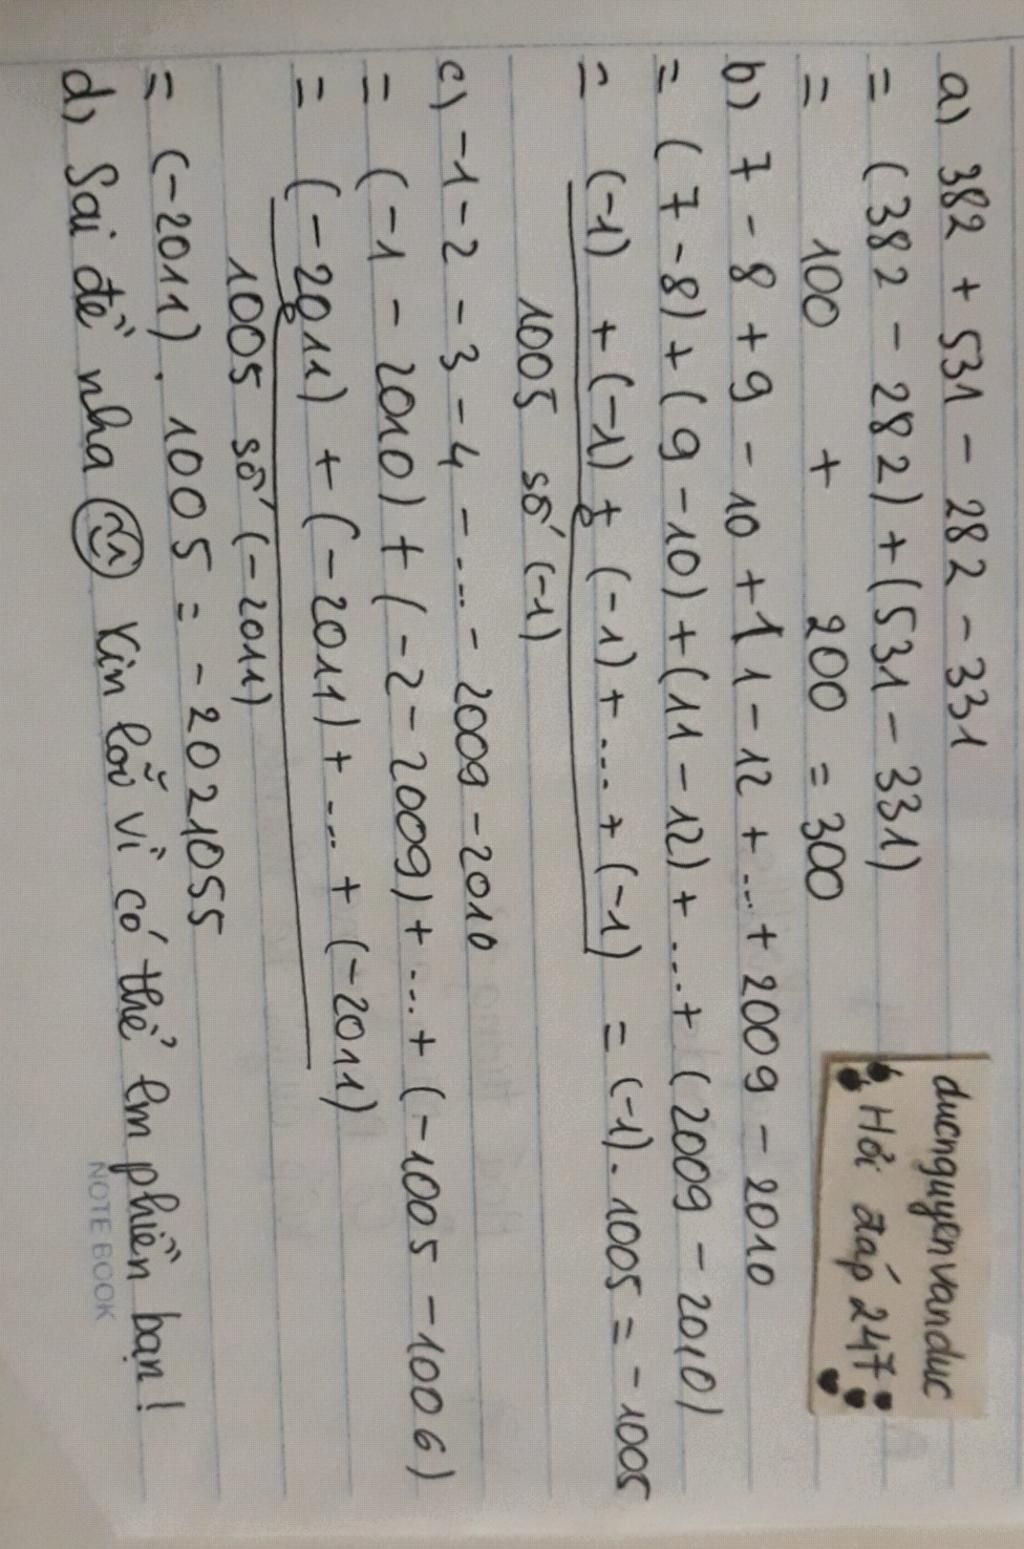 a) 382 + 531 - 282 - 331
= (382 - 282) + (531 - 331)
= 100 + 200 = 300
ducnguyenvanduc
Hỏi đáp 247
b) 7 - 8 + 9 - 10 + 11 - 12 + ... + 2009 - 2010
= (7 - 8) + (9 - 10) + (11 - 12) + ... + (2009 - 2010)
= (-1) + (-1) + (-1) + ... + (-1) = (-1). 1005 = -1005
1005 số (-1)
c) -1 - 2 - 3 - 4 - ... - 2009 - 2010
= (-1 - 2010) + (-2 - 2009) + ... + (-1005 - 1006)
= (-2011) + (-2011) + ... + (-2011)
1005 số (-2011)
= (-2011). 1005 = -2021055
d) Sai đề nha Xin lỗi vì có thể lm phiền bạn!
NOTE BOOK